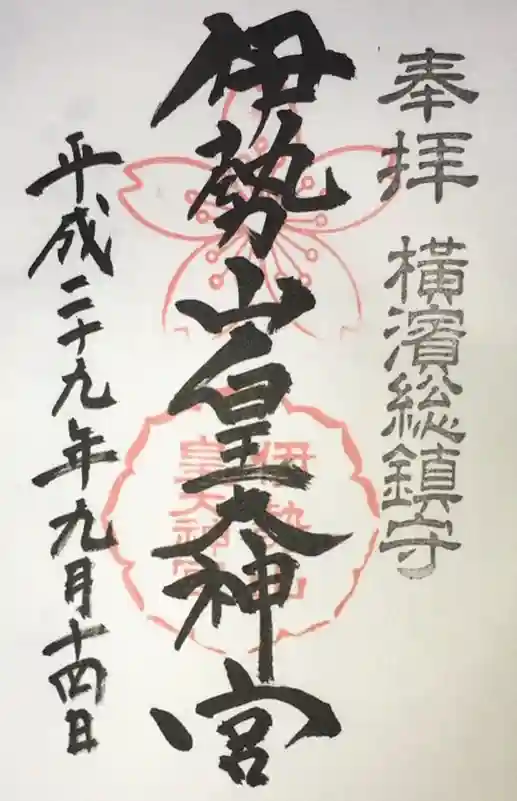 奉拝 横濱総鎮守
伊勢山皇大神宮
平成二十九年九月十四日
伊勢山
皇大神宮